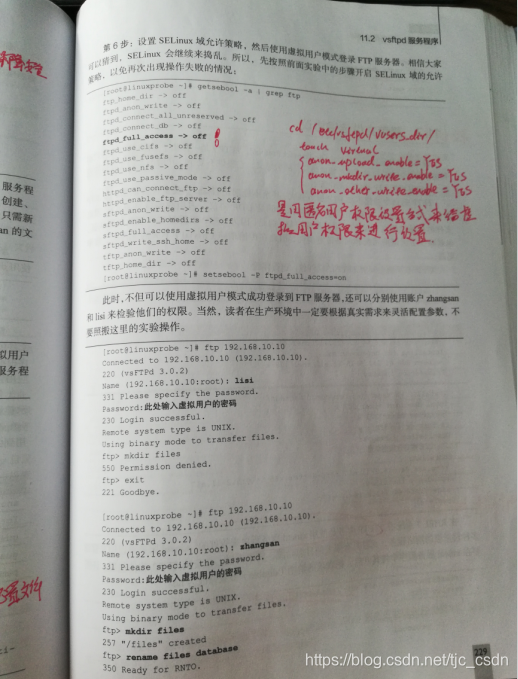 11.2 vsftpd 服务程序
第 6 步：设置 SELinux 域允许策略，然后使用虚拟用户模式登录 FTP 服务器。相信大家
可以猜到，SELinux 会继续来捣乱。所以，先按照前面实验中的步骤开启 SELinux 域的允许
策略，以免再次出现操作失败的情况：
[root@linuxprobe ~]# getsebool -a | grep ftp
ftp_home_dir -> off
ftpd_anon_write -> off
ftpd_connect_all_unreserved -> off
ftpd_connect_db -> off
ftpd_full_access -> off
ftpd_use_cifs -> off
ftpd_use_fusefs -> off
ftpd_use_nfs -> off
ftpd_use_passive_mode -> off
httpd_can_connect_ftp -> off
httpd_enable_ftp_server -> off
sftpd_anon_write -> off
sftpd_enable_homedirs -> off
sftpd_full_access -> off
sftpd_write_ssh_home -> off
tftp_anon_write -> off
tftp_home_dir -> off
[root@linuxprobe ~]# setsebool -P ftpd_full_access=on
cd /etc/vsftpd/vusers_dir/
touch
anon_upload_enable=YES
anon_mkdir_write_enable=YES
anon_other_write_enable=YES
是用匿名用户权限设置
用户权限来进行设置.
此时，不但可以使用虚拟用户模式成功登录到 FTP 服务器，还可以分别使用账户 zhangsan
和 lisi 来检验他们的权限。当然，读者在生产环境中一定要根据真实需求来灵活配置参数，不
要照搬这里的实验操作。
[root@linuxprobe ~]# ftp 192.168.10.10
Connected to 192.168.10.10 (192.168.10.10).
220 (vsFTPd 3.0.2)
Name (192.168.10.10:root): lisi
331 Please specify the password.
Password:此处输入虚拟用户的密码
230 Login successful.
Remote system type is UNIX.
Using binary mode to transfer files.
ftp> mkdir files
550 Permission denied.
ftp> exit
221 Goodbye.
[root@linuxprobe ~]# ftp 192.168.10.10
Connected to 192.168.10.10 (192.168.10.10).
220 (vsFTPd 3.0.2)
Name (192.168.10.10:root): zhangsan
331 Please specify the password.
Password:此处输入虚拟用户的密码
230 Login successful.
Remote system type is UNIX.
Using binary mode to transfer files.
ftp> mkdir files
257 "/files" created
ftp> rename files database
350 Ready for RNTO.
229
服务程
创建、
只需新
an 的文
拟用户
服务程
置文件
https://blog.csdn.net/tjc_csdn